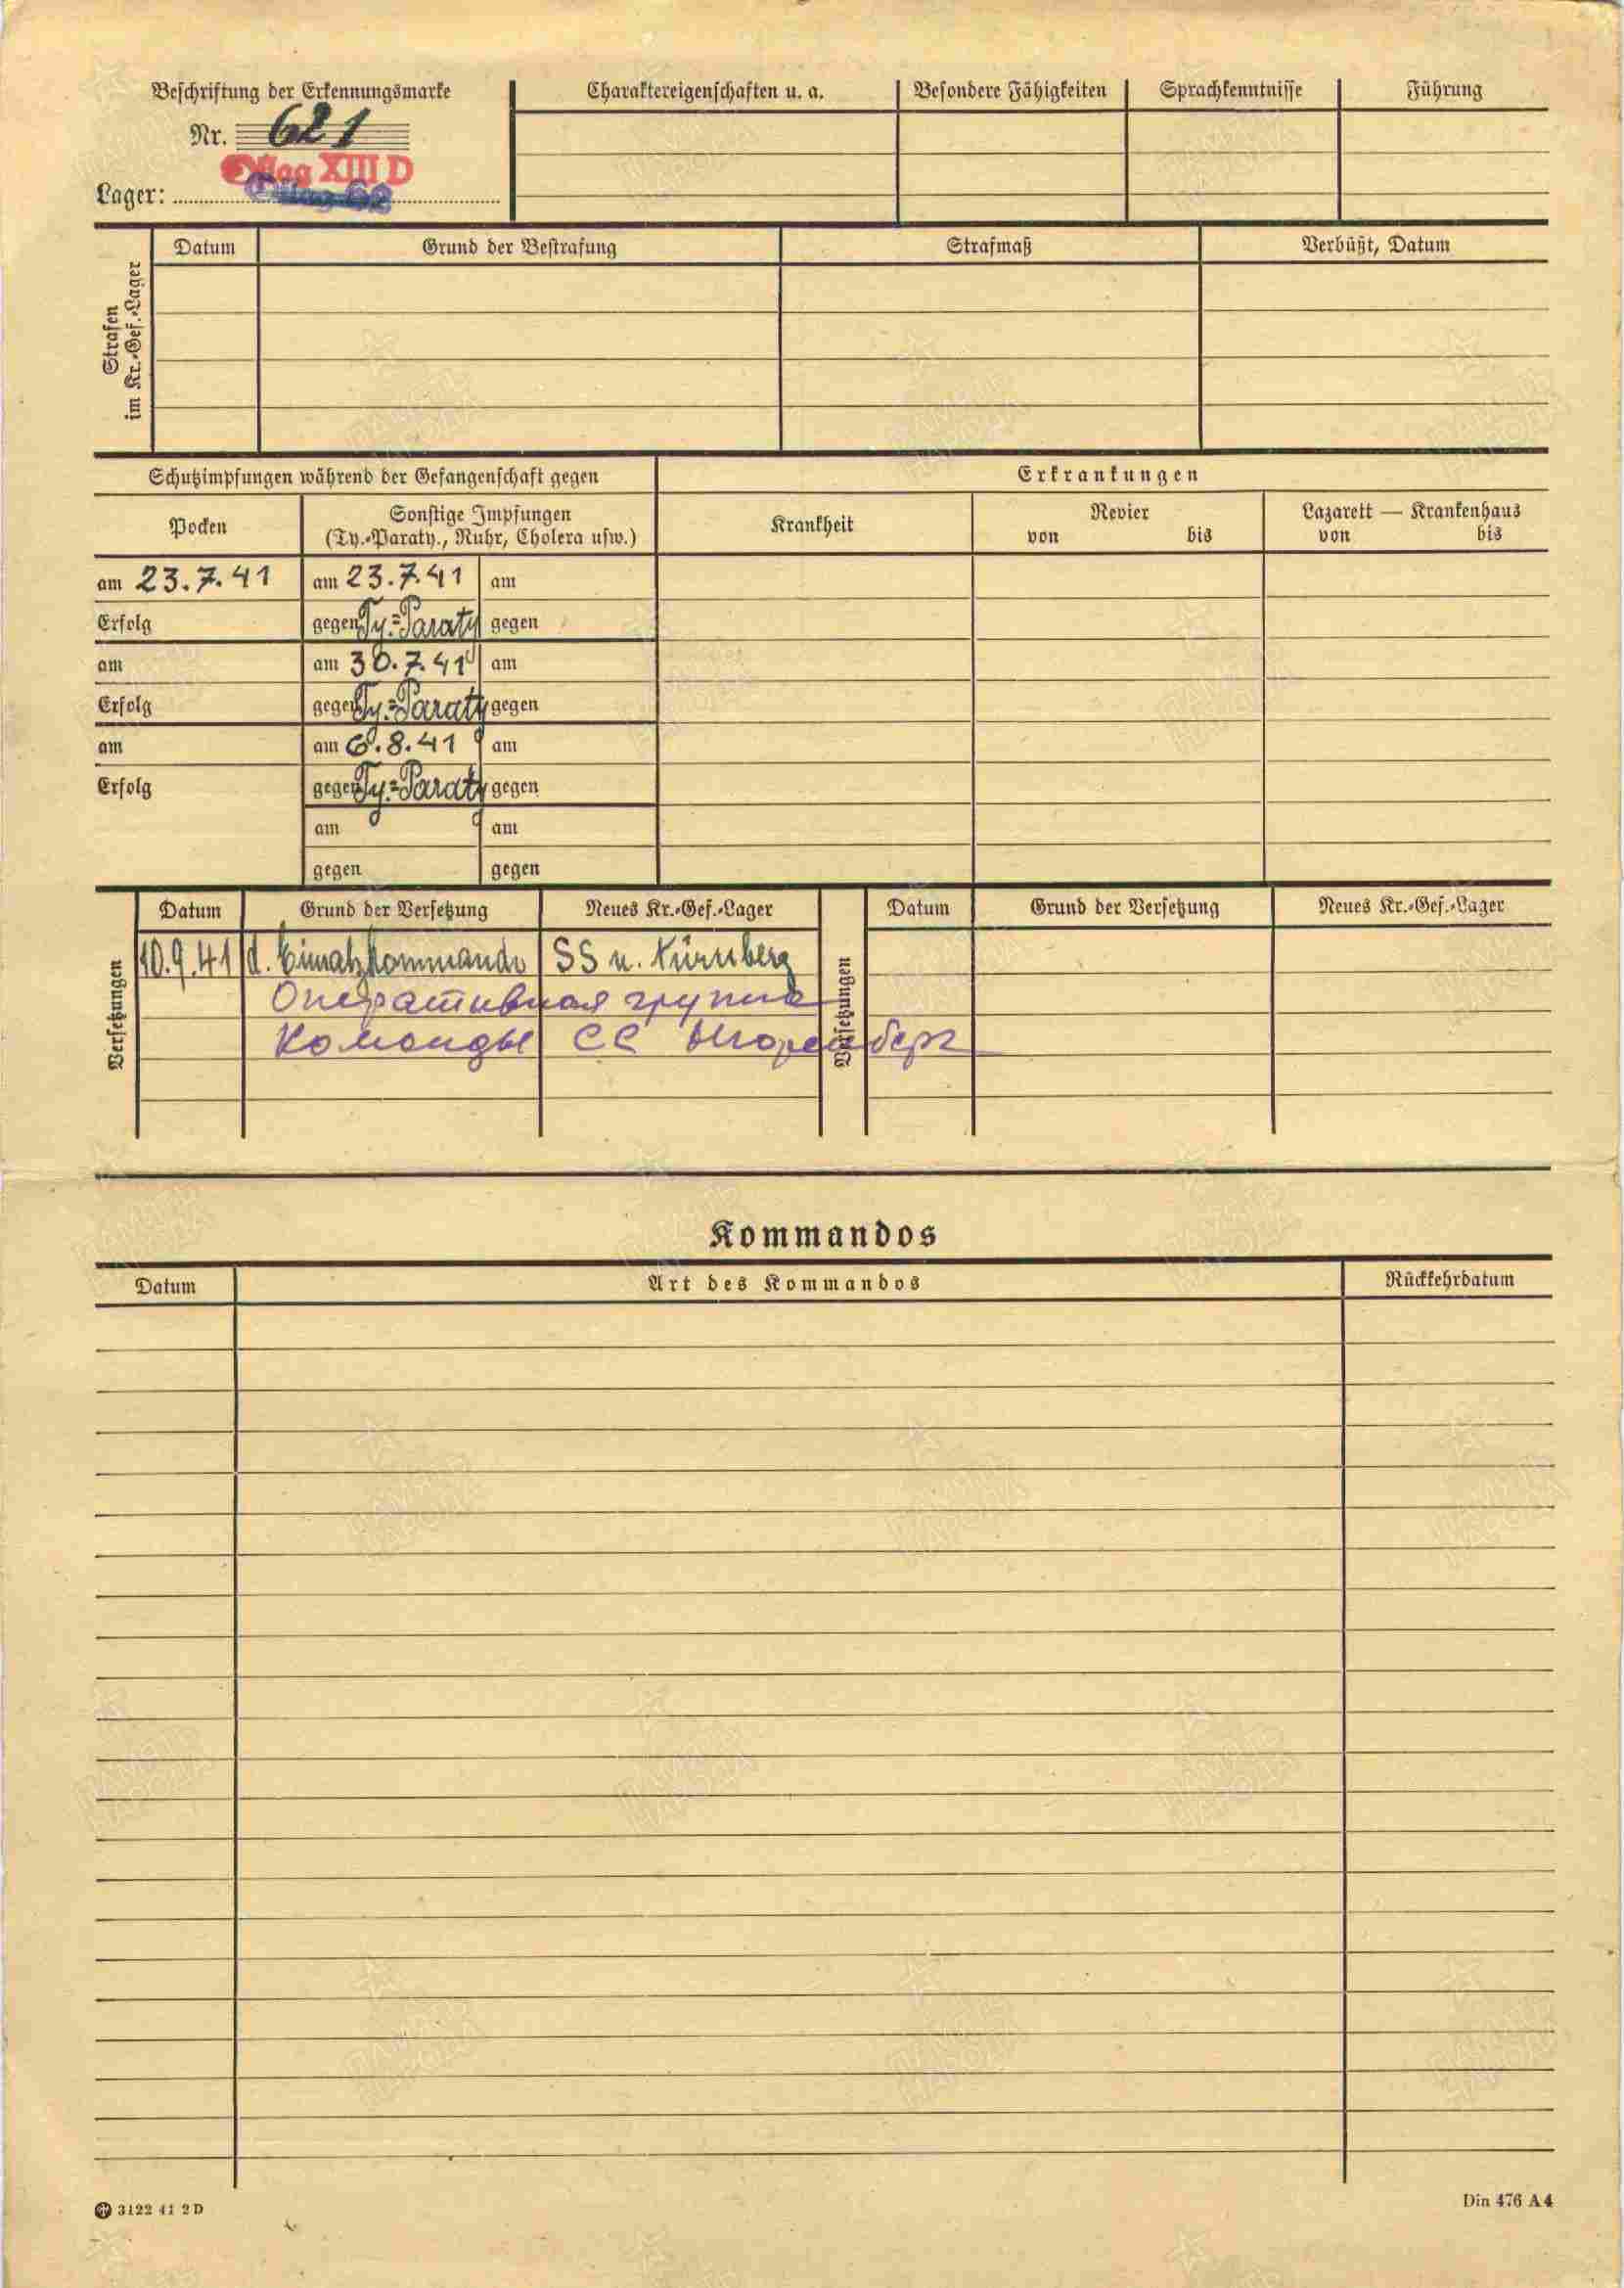 Beschriftung der Erkennungsmarke
Nr. 621
Oflag XIII D
Lager: Oflag 62
Charaktereigenschaften u. a.
Besondere Fähigkeiten
Sprachkenntnisse
Führung
Strafen
im Kr.-Gef.-Lager
Datum
Grund der Bestrafung
Strafmaß
Verbüßt, Datum
Schutzimpfungen während der Gefangenschaft gegen
Erkrankungen
Pocken
Sonstige Impfungen
(Ty.-Paraty., Ruhr, Cholera usw.)
Krankheit
Revier
von bis
Lazarett — Krankenhaus
von bis
am 23.7.41 am 23.7.41 am
Erfolg gegen Ty.-Paraty gegen
am am 30.7.41 am
Erfolg gegen Ty.-Paraty gegen
am am 6.8.41 am
Erfolg gegen Ty.-Paraty gegen
am am
gegen gegen
Versetzungen
Datum Grund der Versetzung Neues Kr.-Gef.-Lager
10.9.41 d. Einsatzkommando SS n. Nürnberg
Оперативная группа
Команды СС Нюренберг
Versetzungen
Datum Grund der Versetzung Neues Kr.-Gef.-Lager
Kommandos
Datum Art des Kommandos Rückkehrdatum
3122 41 2D
Din 476 A4